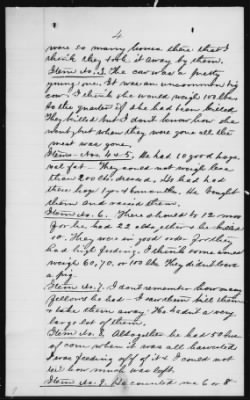 4
were so many bones there that I
think they stole it away by them.
Item No. 3. The cow was a pretty
young one. It was an uncommon big
cow. I think she would weigh 100 lbs.
to the quarter if she had been killed.
They killed but I don't know how she
went, but when they were gone all the
meat was gone.
Item Nos. 4 & 5. He had 10 good hogs
real fat. They could not weigh less
than 200 lbs. dressed. He had had
these hogs 1 yr & 6 months. He bought
them and raised them.
Item No. 6. There should be 12 more
for he had 22 altogether & he killed
10. They were in good order for they
had high feeding. I think some would
weigh 60, 70, or 100 lbs. They didn't leave
a pig.
Item No. 7. I don't remember how many
fellows he had. I saw them kill them
& take them away. He hadn't a very
large lot of them.
Item No. 8. Altogether he had 50 bu.
of corn when it was all harvested.
I was feeding off of it & I could not
tell how much was left.
Item No. 9. He counted me 6 or 8